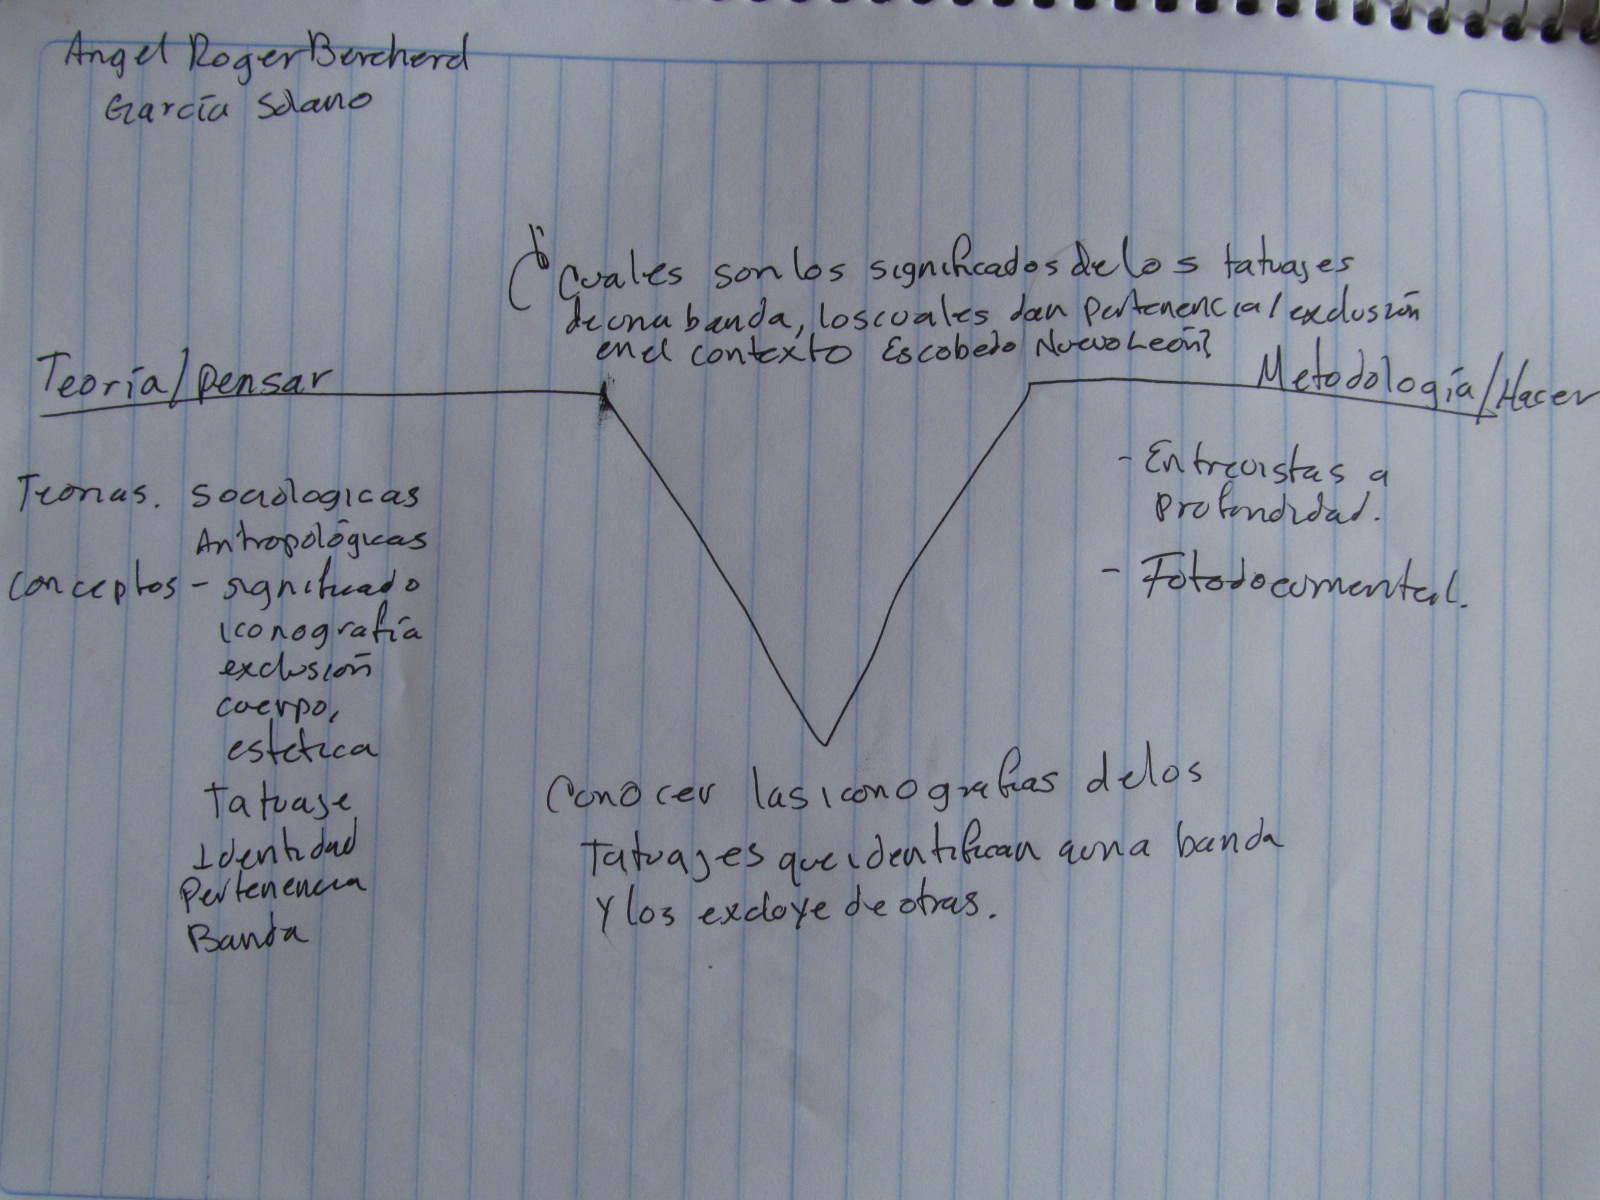 Angel Roger Bercherd
García Solano
¿Cuales son los significados de los tatuajes
de una banda, los cuales dan pertenencia/exclusión
en el contexto Escobedo Nuevo León?
Teoría/pensar
Metodología/Hacer
Teorias. Sociologicas
Antropológicas
Conceptos - significado
iconografía
exclusión
cuerpo,
estetica
Tatuaje
Identidad
Pertenencia
Banda
- Entrevistas a
profundidad.
- Fotodocumental.
Conocer las iconografias de los
Tatuajes que identifican a una banda
y los excluye de otras.